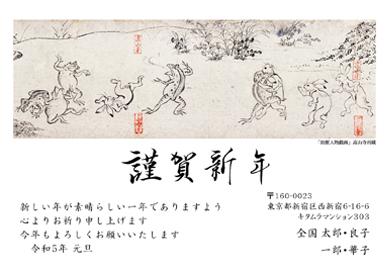 「鳥獣人物戯画」高山寺所蔵
謹賀新年
新しい年が素晴らしい一年でありますよう
心よりお祈り申し上げます
今年もよろしくお願いいたします
令和5年 元旦
〒160-0023
東京都新宿区西新宿6-16-6
キタムラマンション303
全国 太郎・良子
一郎・華子